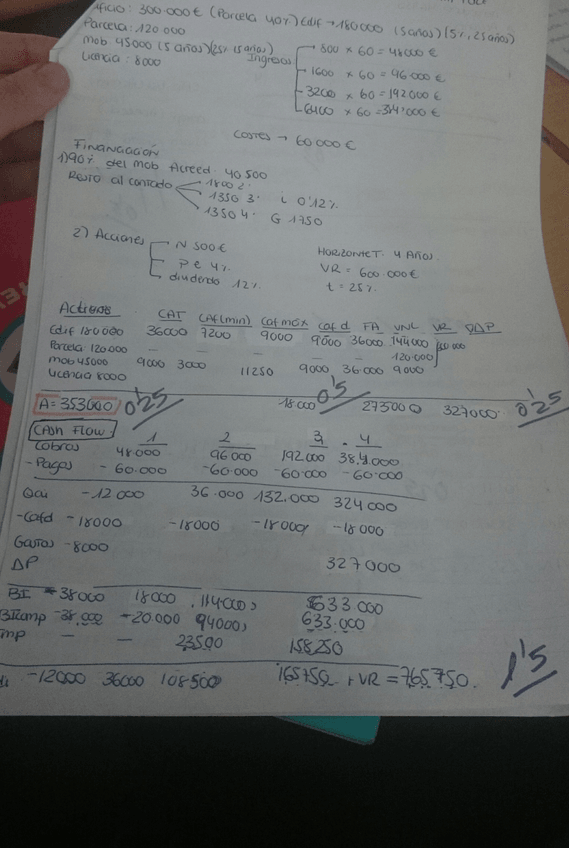 ficio: 300.000€ (Parcela 40%) Edif → 180000 (5 años) (5%, 25 años)
Parcela: 120.000
Mob 45000 (5 años) (25% 15 años)
Licencia: 8000
Ingresos
800 × 60 = 48000 €
1600 × 60 = 96 000 €
3200 × 60 = 192000 €
6400 × 60 = 384'000 €
Costes → 60000 €
Financiación
1) 90% del mob Acreed. 40 500
Resto al contado
1800 2·
1350 3· i 0'12%
1350 4· G 1750
2) Acciones
N 500€
Pe 4%
dividendo 12%
HORIZONTE T. 4 AÑOS
VR = 600.000€
t = 25%
Activos CAT CAf(min) Caf máx Caf d FA VNL VR ΔP
Edif 180000 36000 7200 9000 9000 36000 144000
Parcela: 120.000 — — — — — 120.000
mob 45000 9000 3000 11250 9000 36000 9000
Licencia 8000
A = 353000 0'25 18.000 0'5 273000 327000· 0'25
CASH FLOW 1 2 3 4
Cobros 48.000 96000 192000 384.000
- Pagos - 60.000 -60.000 -60.000 -60.000
-12 000 36.000 132.000 324000
-Cafd -18000 -18000 -18000 -18000
Gastos -8000
ΔP 327000
BI -38000 18000 114000 633 000
BIcomp -38.000 -20.000 94000 633.000
Imp — — 23500 158250
-12000 36000 108500 165750 + VR = 765750. 1'5